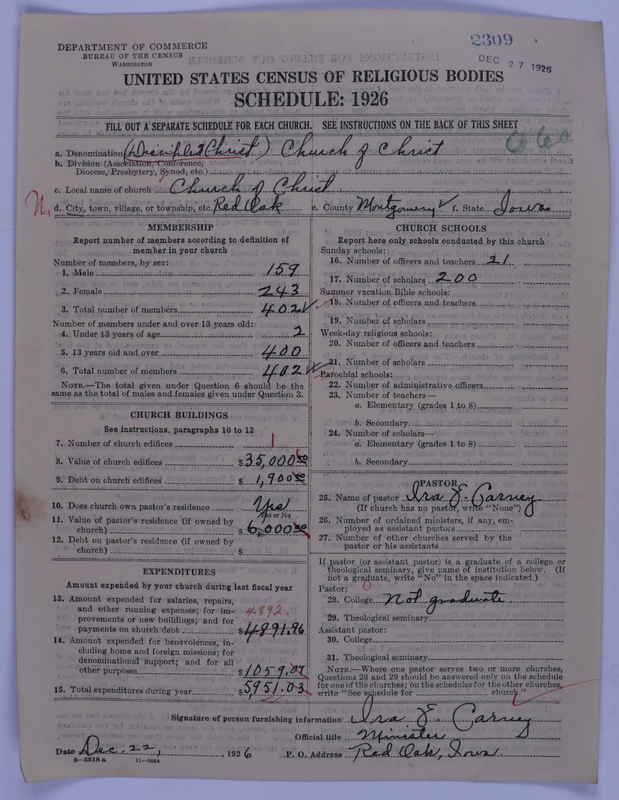 2309
DEC 27 1926
DEPARTMENT OF COMMERCE
BUREAU OF THE CENSUS
WASHINGTON
UNITED STATES CENSUS OF RELIGIOUS BODIES
SCHEDULE: 1926
FILL OUT A SEPARATE SCHEDULE FOR EACH CHURCH. SEE INSTRUCTIONS ON THE BACK OF THIS SHEET
060
a. Denomination (Disciples Christ) Church of Christ
b. Division (Association, Conference,
Diocese, Presbytery, Synod, etc.)
c. Local name of church Church of Christ
d. City, town, village, or township, etc. Red Oak e. County Montgomery f. State Iowa
MEMBERSHIP
Report number of members according to definition of
member in your church
Number of members, by sex:
1. Male 159
2. Female 243
3. Total number of members 402
Number of members under and over 13 years old:
4. Under 13 years of age 2
5. 13 years old and over 400
6. Total number of members 402
NOTE.—The total given under Question 6 should be the
same as the total of males and females given under Question 3.
CHURCH BUILDINGS
See instructions, paragraphs 10 to 12
7. Number of church edifices 1
8. Value of church edifices $35,000.00
9. Debt on church edifices $1,900.00
10. Does church own pastor's residence Yes
Yes or No
11. Value of pastor's residence (if owned by
church) $6,000.00
12. Debt on pastor's residence (if owned by
church) $
EXPENDITURES
Amount expended by your church during last fiscal year
13. Amount expended for salaries, repairs,
and other running expenses; for im-
provements or new buildings; and for
payments on church debt 4892. $4891.96
14. Amount expended for benevolences, in-
cluding home and foreign missions; for
denominational support; and for all
other purposes $1059.07
15. Total expenditures during year $5951.03
CHURCH SCHOOLS
Report here only schools conducted by this church
Sunday schools:
16. Number of officers and teachers 21
17. Number of scholars 200
Summer vacation Bible schools:
18. Number of officers and teachers
19. Number of scholars
Week-day religious schools:
20. Number of officers and teachers
21. Number of scholars
Parochial schools:
22. Number of administrative officers
23. Number of teachers—
a. Elementary (grades 1 to 8)
b. Secondary
24. Number of scholars—
a. Elementary (grades 1 to 8)
b. Secondary
PASTOR
25. Name of pastor Ira E. Carney
(If church has no pastor, write "None")
26. Number of ordained ministers, if any, em-
ployed as assistant pastors
27. Number of other churches served by the
pastor or his assistants
If pastor (or assistant pastor) is a graduate of a college or
theological seminary, give name of institution below. (If
not a graduate, write "No" in the space indicated.)
Pastor:
28. College Not graduate.
29. Theological seminary
Assistant pastor:
30. College
31. Theological seminary
NOTE.—Where one pastor serves two or more churches,
Questions 28 and 29 should be answered only on the schedule
for one of the churches; on the schedules for the other churches,
write "See schedule for church."
Signature of person furnishing information Ira E. Carney
Official title Minister
Date Dec. 22, 1926 P. O. Address Red Oak, Iowa.
8—5318a 11—9064